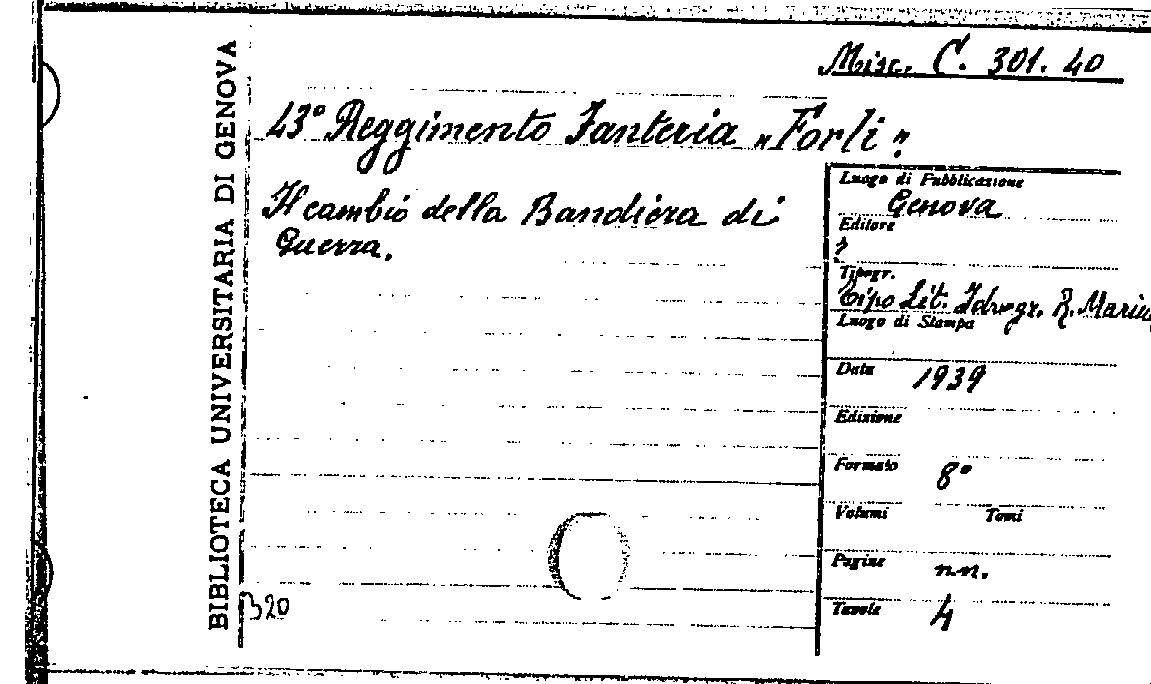 Misc. C. 301. 40
43° Reggimento Fanteria „Forlì"
Il cambio della Bandiera di
Guerra.
BIBLIOTECA UNIVERSITARIA DI GENOVA
B20
Luogo di Pubblicazione
Genova
Editore
?
Tipogr.
Tipo Lit. Idrogr. R. Marina
Luogo di Stampa
Data 1939
Edizione
Formato 8°
Volumi Tomi
Pagine n.n.
Tavole 4